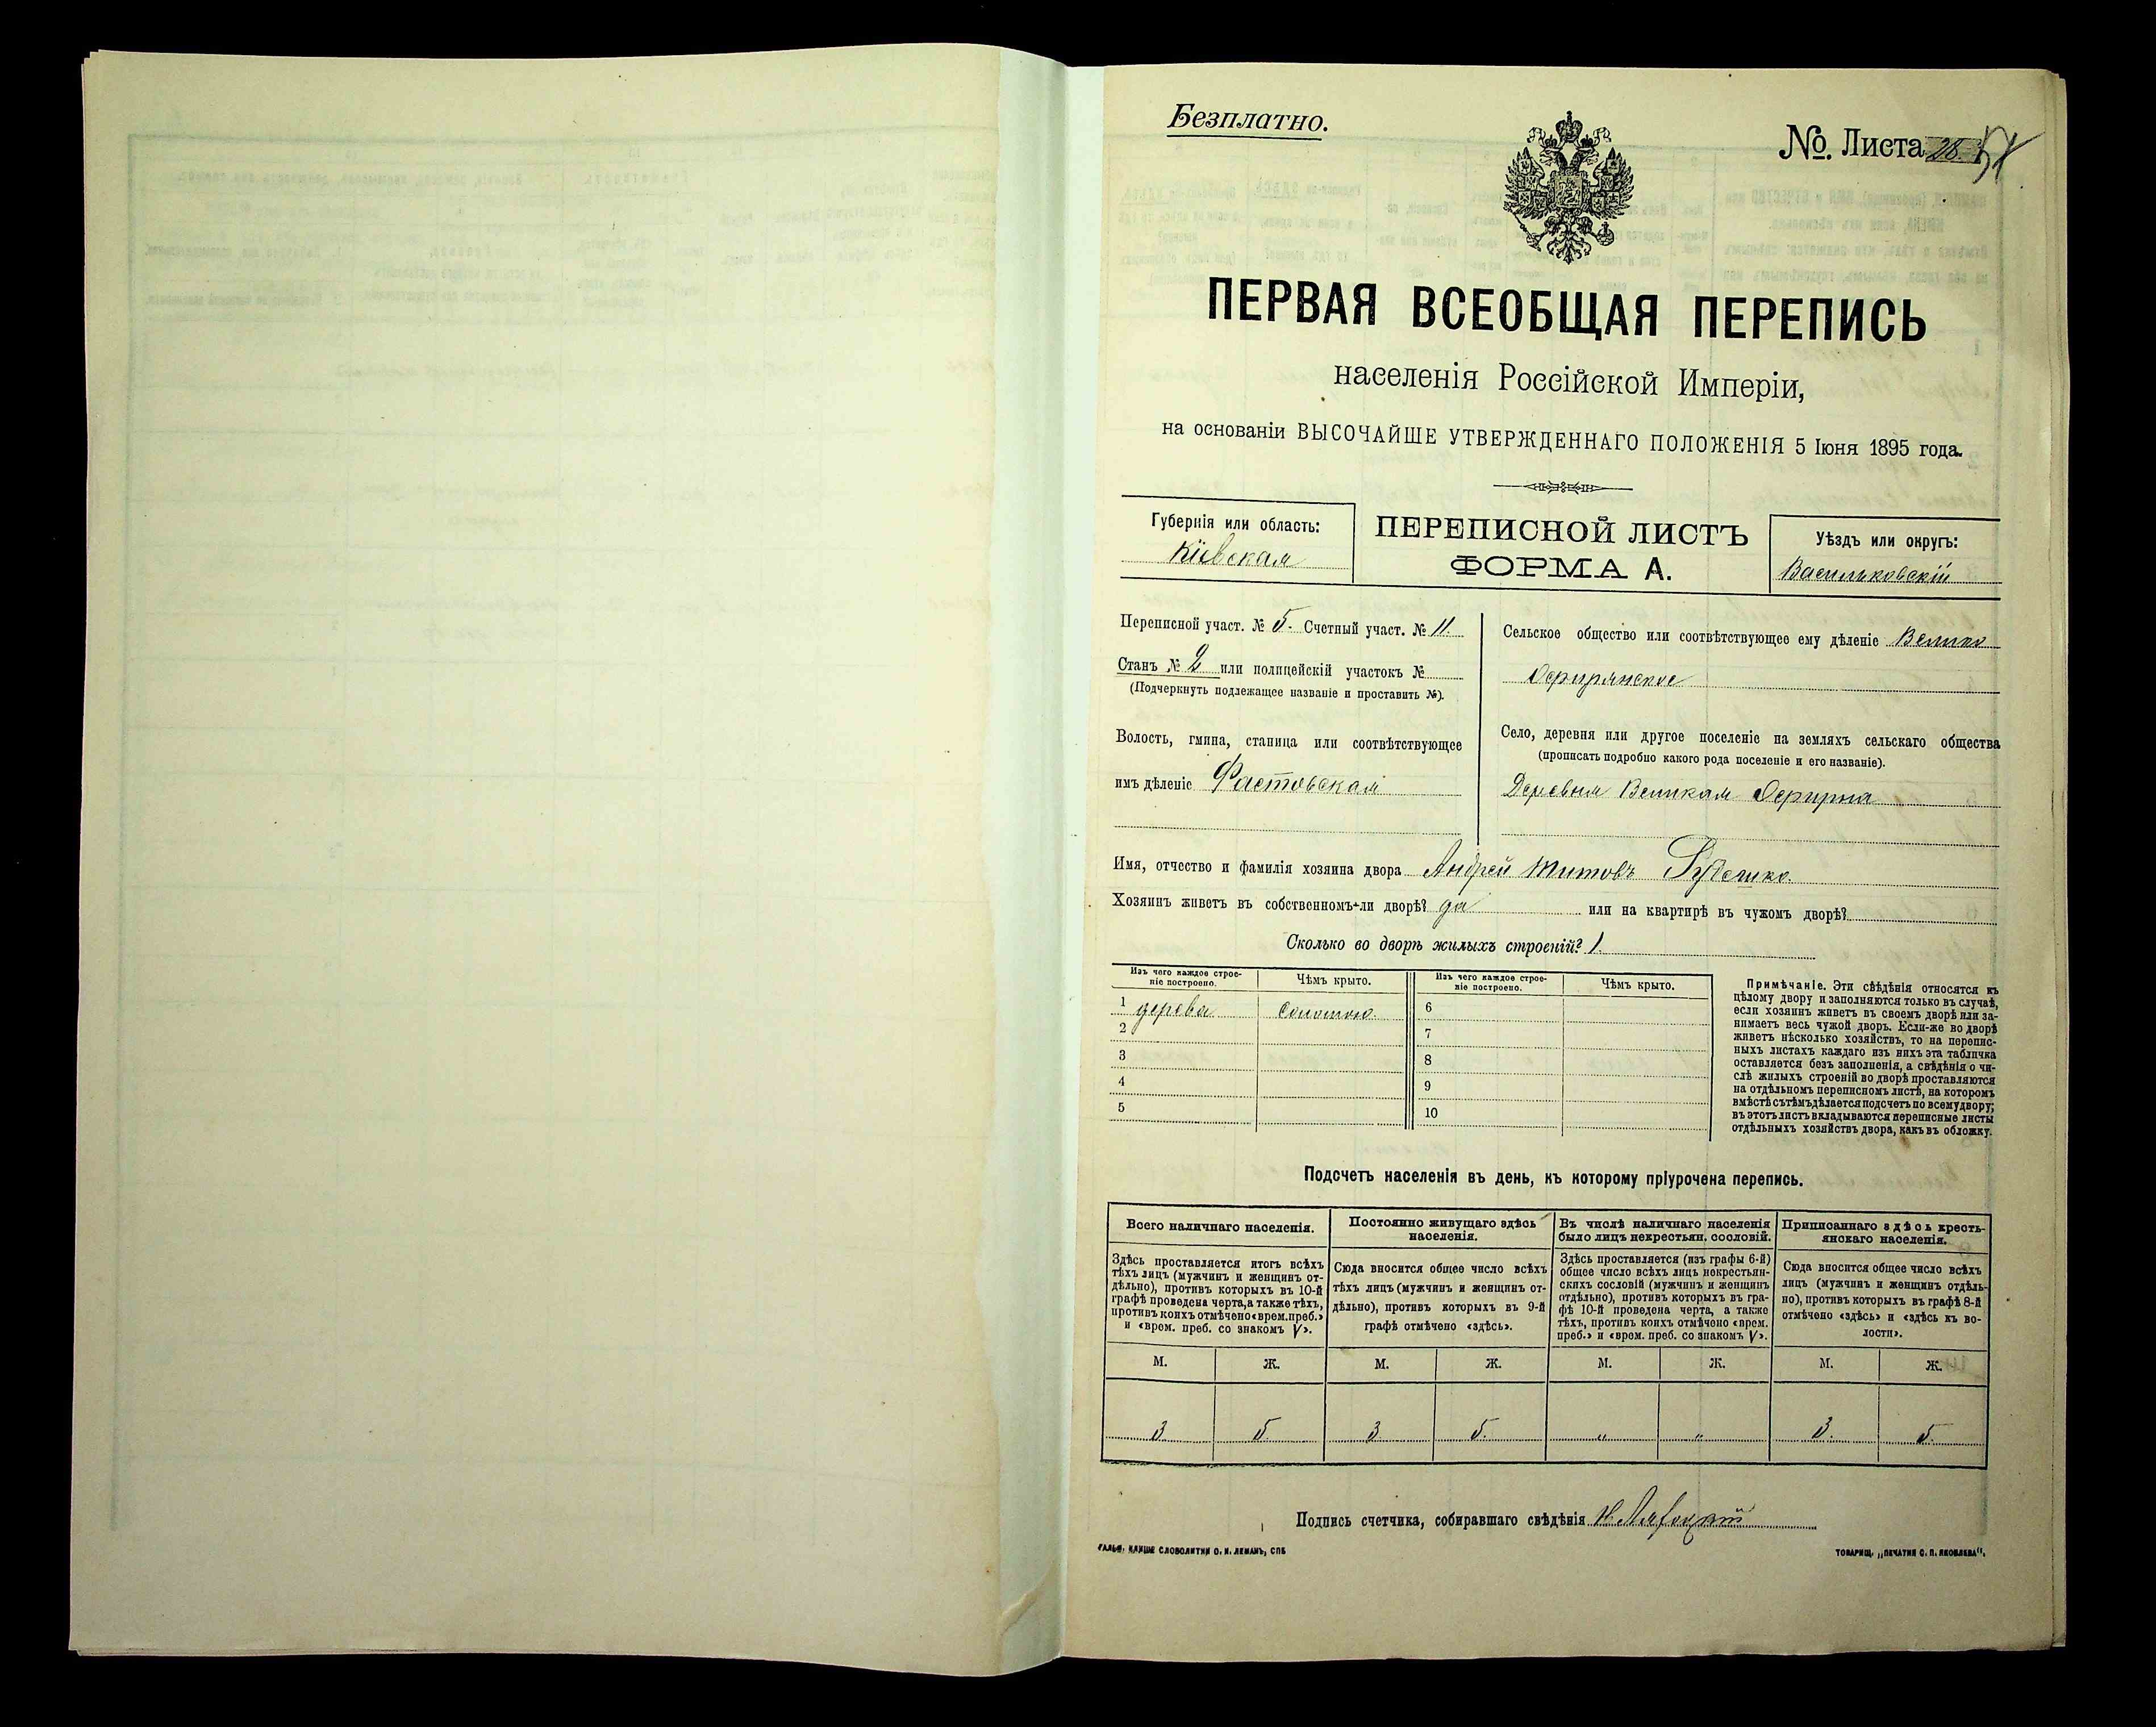 Безплатно.
№. Листа 28.
ПЕРВАЯ ВСЕОБЩАЯ ПЕРЕПИСЬ
населенія Россійской Имперіи,
на основаніи ВЫСОЧАЙШЕ УТВЕРЖДЕННАГО ПОЛОЖЕНІЯ 5 Іюня 1895 года.
Губернія или область:
Кіевская
ПЕРЕПИСНОЙ ЛИСТЪ
ФОРМА А.
Уѣздъ или округъ:
Васильковскій
Переписной участ. № 5. Счетный участ. № 11.
Станъ № 2 или полицейскій участокъ №
(Подчеркнуть подлежащее названіе и проставить №).
Волость, гмина, станица или соотвѣтствующее
имъ дѣленіе Фастовская
Сельское общество или соотвѣтствующее ему дѣленіе Велико
Село, деревня или другое поселеніе на земляхъ сельскаго общества
(прописать подробно какого рода поселеніе и его названіе).
Деревня Великая
Имя, отчество и фамилія хозяина двора Андрей Титовъ
Хозяинъ живетъ въ собственномъ-ли дворѣ? да или на квартирѣ въ чужомъ дворѣ?
Сколько во дворѣ жилыхъ строеній? 1.
Изъ чего каждое строе-
ніе построено.
Чѣмъ крыто.
Изъ чего каждое строе-
ніе построено.
Чѣмъ крыто.
1 дерева соломою. 6
2 7
3 8
4 9
5 10
Примѣчаніе. Эти свѣдѣнія относятся къ
цѣлому двору и заполняются только въ случаѣ,
если хозяинъ живетъ въ своемъ дворѣ или за-
нимаетъ весь чужой дворъ. Если-же во дворѣ
живетъ нѣсколько хозяйствъ, то на перепис-
ныхъ листахъ каждаго изъ нихъ эта табличка
оставляется безъ заполненія, а свѣдѣнія о чи-
слѣ жилыхъ строеній во дворѣ проставляются
на отдѣльномъ переписномъ листѣ, на которомъ
вмѣстѣ съ тѣмъ дѣлается подсчетъ по всему двору;
въ этотъ листъ вкладываются переписные листы
отдѣльныхъ хозяйствъ двора, какъ въ обложку.
Подсчетъ населенія въ день, къ которому пріурочена перепись.
Всего наличнаго населенія.
Здѣсь проставляется итогъ всѣхъ
тѣхъ лицъ (мужчинъ и женщинъ от-
дѣльно), противъ которыхъ въ 10-й
графѣ проведена черта, а также тѣхъ,
противъ коихъ отмѣчено «врем. преб.»
и «врем. преб. со знакомъ V».
Постоянно живущаго здѣсь
населенія.
Сюда вносится общее число всѣхъ
тѣхъ лицъ (мужчинъ и женщинъ от-
дѣльно), противъ которыхъ въ 9-й
графѣ отмѣчено «здѣсь».
Въ числѣ наличнаго населенія
было лицъ некрестьян. сословій.
Здѣсь проставляется (изъ графы 6-й)
общее число всѣхъ лицъ некрестьян-
скихъ сословій (мужчинъ и женщинъ
отдѣльно), противъ которыхъ въ гра-
фѣ 10-й проведена черта, а также
тѣхъ, противъ коихъ отмѣчено «врем.
преб.» и «врем. преб. со знакомъ V».
Приписаннаго здѣсь кресть-
янскаго населенія.
Сюда вносится общее число всѣхъ
лицъ (мужчинъ и женщинъ отдѣль-
но), противъ которыхъ въ графѣ 8-й
отмѣчено «здѣсь» и «здѣсь въ во-
лости».
М. Ж. М. Ж. М. Ж. М. Ж.
3 5 3 5. „ „ 3. 5.
Подпись счетчика, собиравшаго свѣдѣнія
ГАЛЬВ. КЛИШЕ СЛОВОЛИТНИ О. И. ЛЕМАНЪ, СПБ
ТОВАРИЩ. „ПЕЧАТНЯ С. П. ЯКОВЛЕВА".